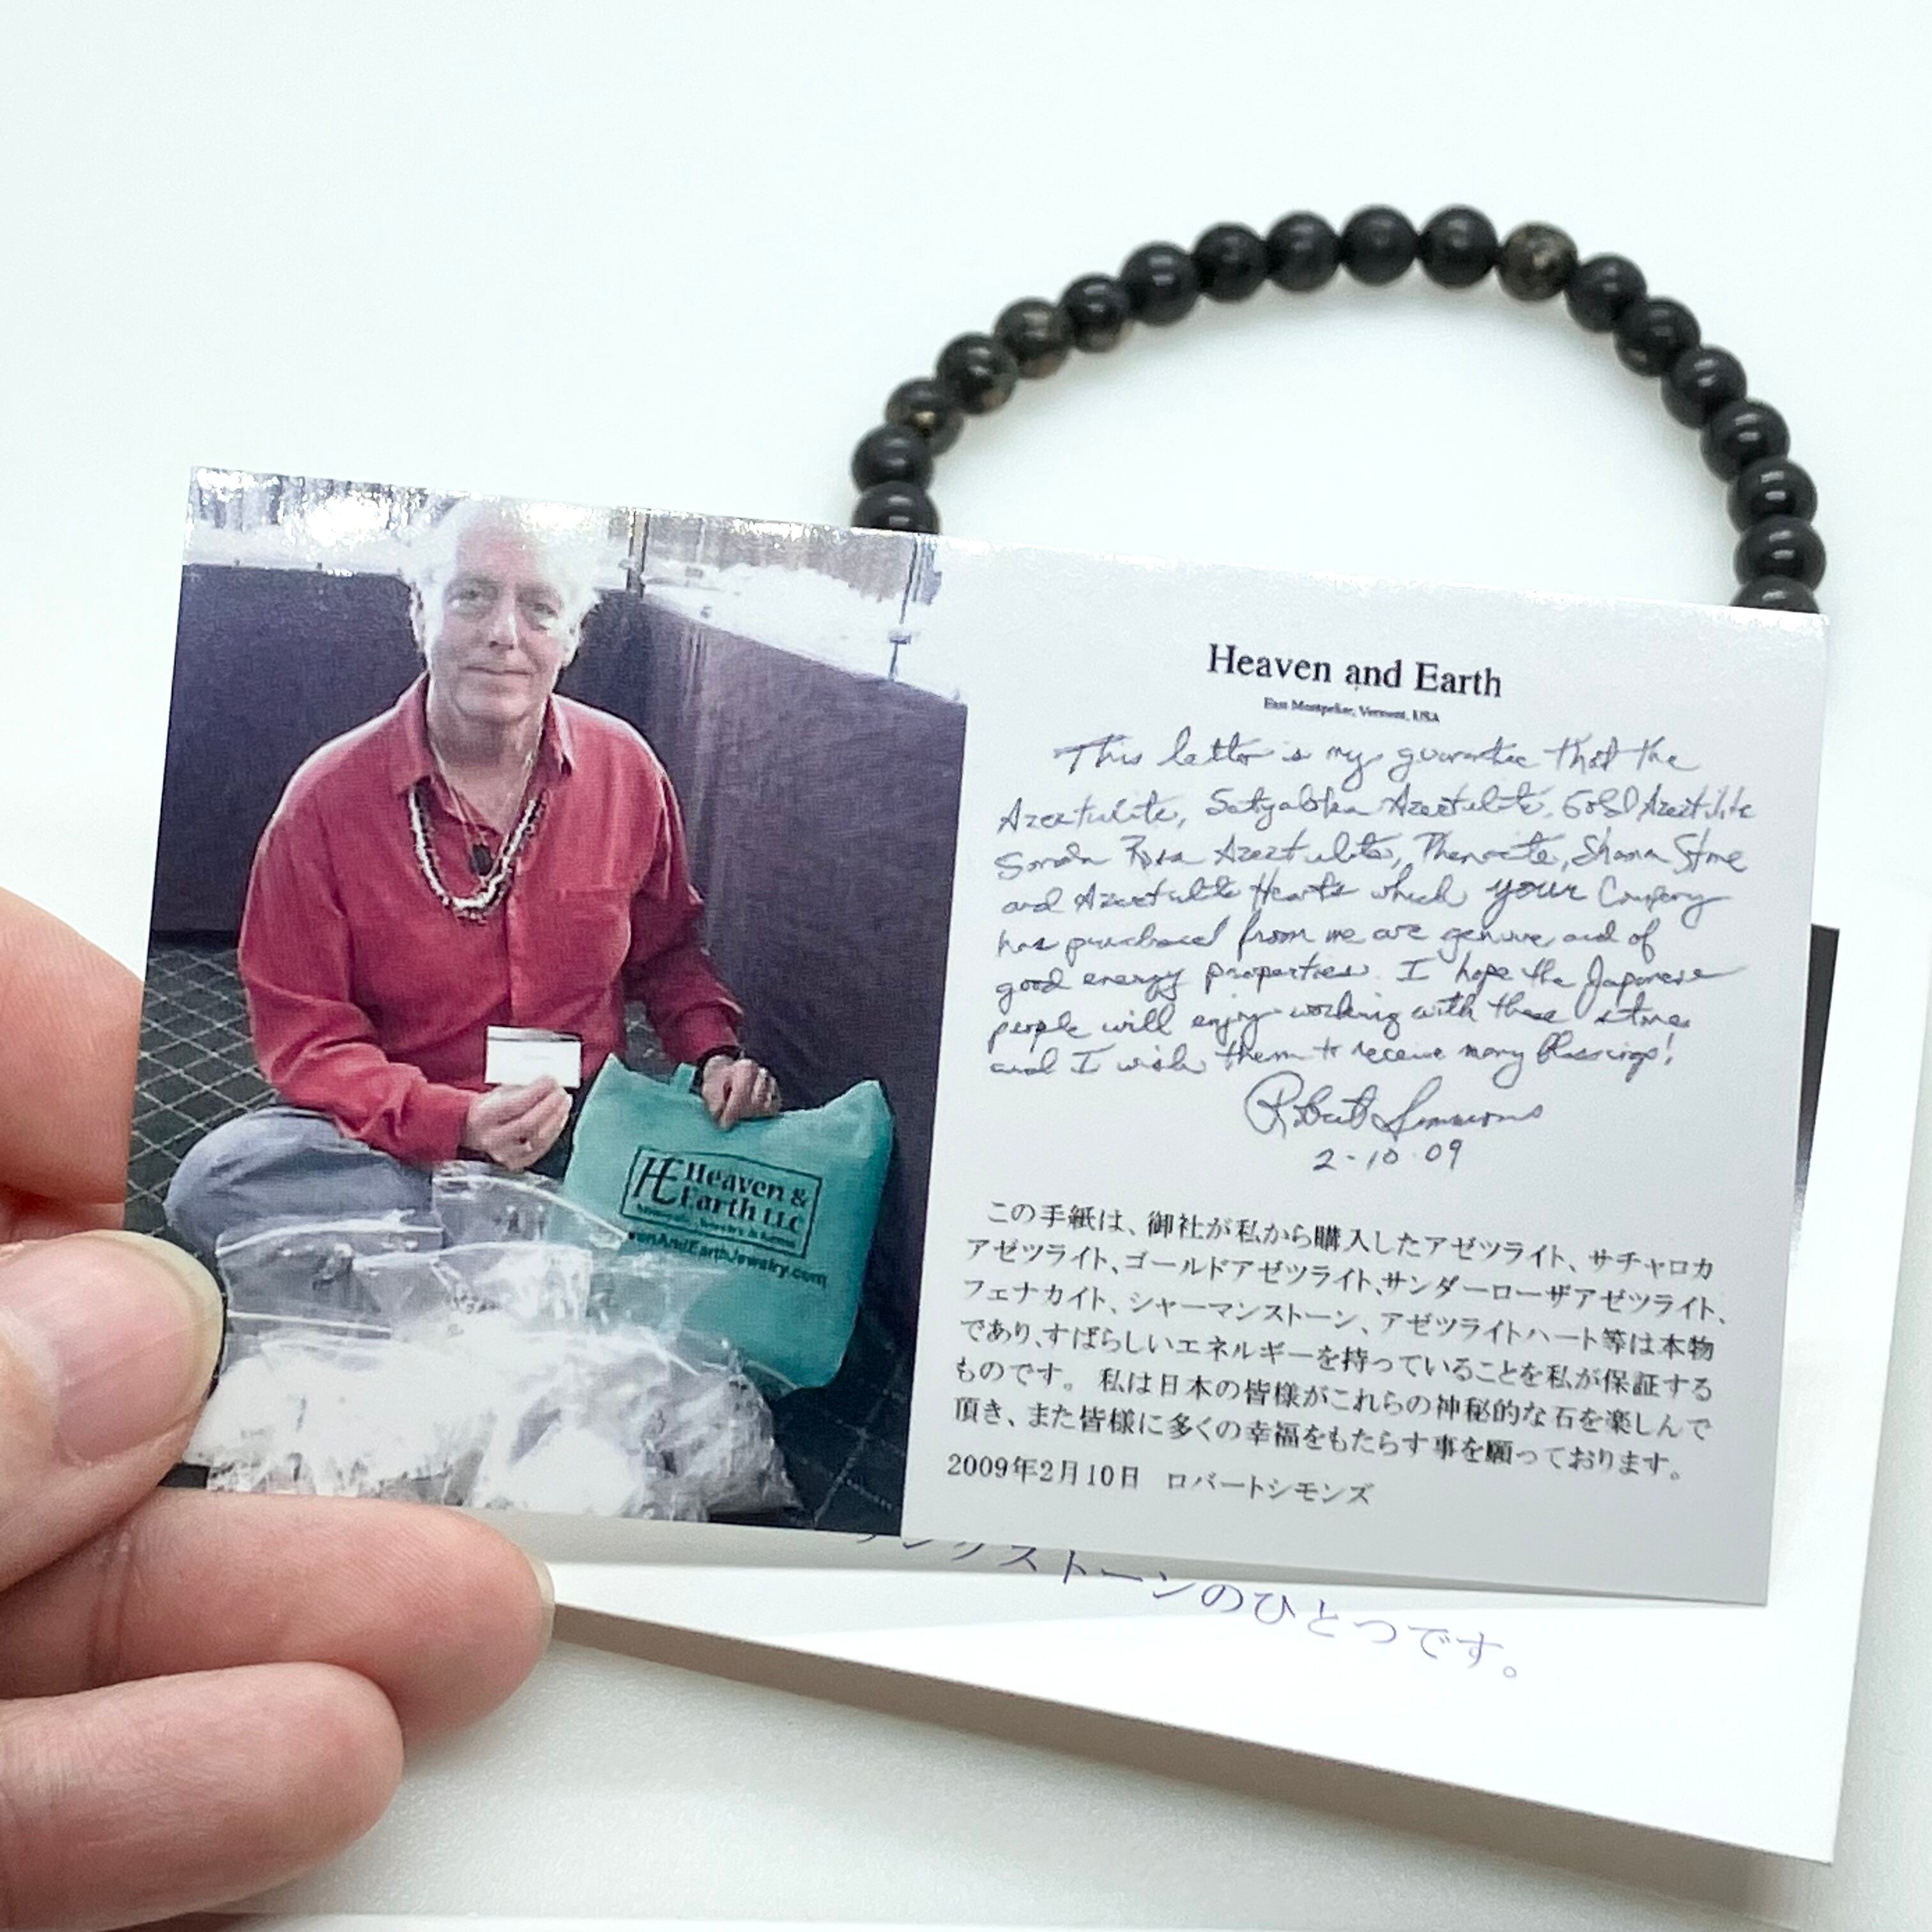 Heaven and Earth
East Montpelier, Vermont, USA
This letter is my guarantee that the
Azeztulite, Satyaloka Azeztulite, Gold Azeztulite
Sanda Rosa Azeztulite, Phenacite, Shaman Stone
and Azeztulite Hearts which your Company
has purchased from me are genuine and of
good energy properties. I hope the Japanese
people will enjoy working with these stones
and I wish them to receive many blessings!
Robert Simmons
2-10-09
この手紙は、御社が私から購入したアゼツライト、サチャロカ
アゼツライト、ゴールドアゼツライト、サンダーローザアゼツライト、
フェナカイト、シャーマンストーン、アゼツライトハート等は本物
であり、すばらしいエネルギーを持っていることを私が保証する
ものです。私は日本の皆様がこれらの神秘的な石を楽しんで
頂き、また皆様に多くの幸福をもたらす事を願っております。
2009年2月10日 ロバートシモンズ
HE Heaven &
Earth LLC
enAndEarthJewelry.com
ストーンのひとつです。